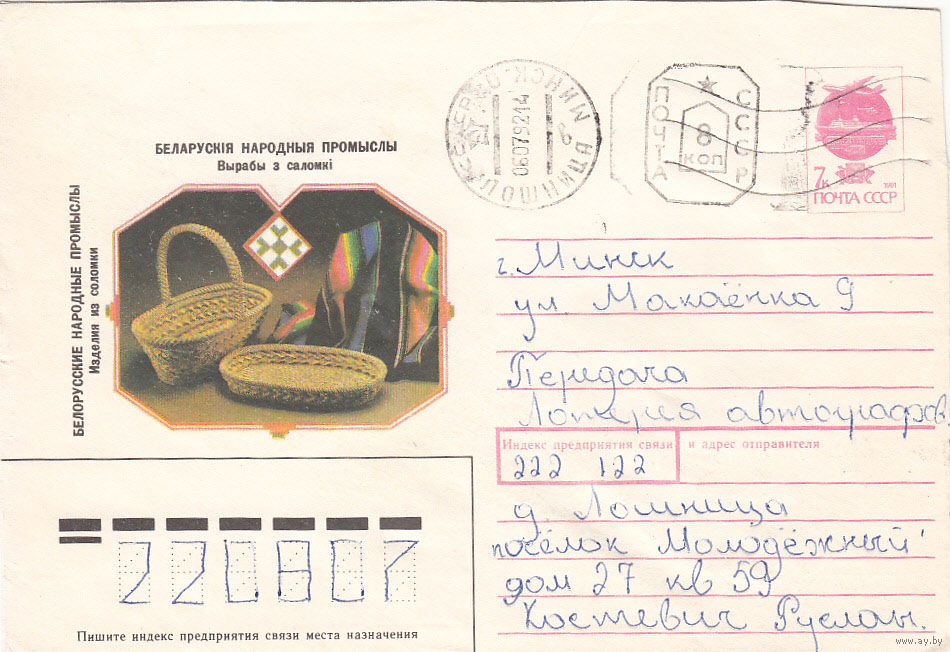 БЕЛАРУСКІЯ НАРОДНЫЯ ПРОМЫСЛЫ
Вырабы з саломкі
БЕЛОРУССКИЕ НАРОДНЫЕ ПРОМЫСЛЫ
Изделия из соломки
МИНСК
06079214
ПОЧТА
СССР
8
коп
7к
1991
ПОЧТА СССР
г. Минск
ул. Макаёнка 9
Передача
Лотерея автографов,
Индекс предприятия связи и адрес отправителя
222 122
д. Лошница
посёлок Молодёжный
дом 27 кв 59
Костевич Руслан.
220807
Пишите индекс предприятия связи места назначения
www.ay.by